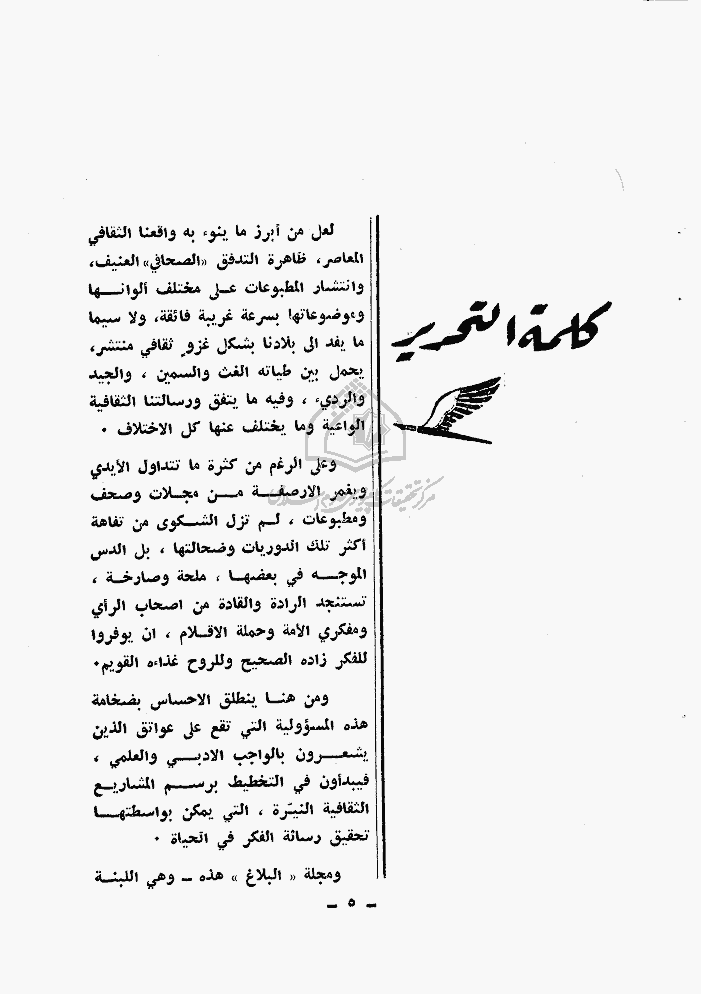 كلمة التحرير
لعل من أبرز ما ينوء به واقعنا الثقافي
المعاصر، ظاهرة التدفق «الصحافي» العنيف،
وانتشار المطبوعات على مختلف ألوانها
وموضوعاتها بسرعة غريبة فائقة، ولا سيما
ما يفد الى بلادنا بشكل غزو ثقافي منتشر،
يحمل بين طياته الغث والسمين ، والجيد
والرديء ، وفيه ما يتفق ورسالتنا الثقافية
الواعية وما يختلف عنها كل الاختلاف .
وعلى الرغم من كثرة ما تتداول الأيدي
ويغمر الارصفة من مجلات وصحف
ومطبوعات ، لم تزل الشكوى من تفاهة
أكثر تلك الدوريات وضحالتها ، بل الدس
الموجه في بعضها ، ملحة وصارخة ،
تستنجد الرادة والقادة من اصحاب الرأي
ومفكري الأمة وحملة الاقلام ، ان يوفروا
للفكر زاده الصحيح وللروح غذاءه القويم.
ومن هنا ينطلق الاحساس بضخامة
هذه المسؤولية التي تقع على عواتق الذين
يشعرون بالواجب الادبي والعلمي ،
فيبدأون في التخطيط برسم المشاريع
الثقافية النيّرة ، التي يمكن بواسطتها
تحقيق رسالة الفكر في الحياة .
ومجلة « البلاغ » هذه ـ وهي اللبنة
ـ ٥ ـ